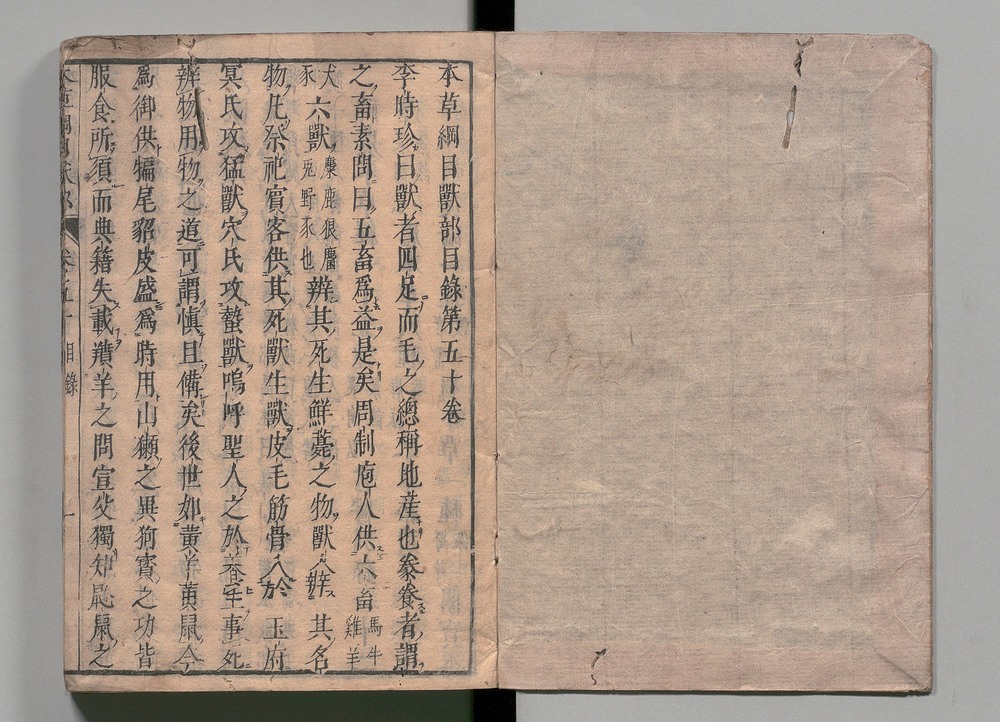 本草綱目獸部目錄第五十卷
李時珍曰獸者四足而毛之總稱地產也豢養者謂
之畜素問曰五畜爲益是矣周制庖人供六畜馬牛雞羊
犬豕六獸麋鹿狼麕兎野豕也辨其死生鮮薧之物獸人辨其名
物凡祭祀賓客供其死獸生獸皮毛筋骨入於玉府
冥氏攻猛獸穴氏攻蟄獸嗚呼聖人之於養生事死
辨物用物之道可謂慎且備矣後世如黃羊黃鼠今
爲御供犏尾貂皮盛爲時用山獺之異狗寶之功皆
服食所須而典籍失載羵羊之問宣父獨知鼮鼠之
卷之五十目錄 一